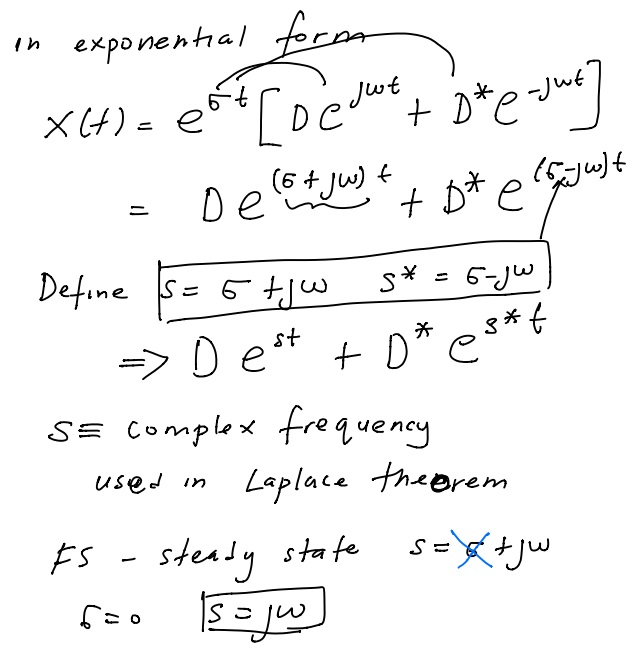 in exponential form
x(t) = e^{σt} [ D e^{jωt} + D* e^{-jωt} ]
= D e^{(σ + jω) t} + D* e^{(σ-jω)t}
Define s = σ + jω s* = σ-jω
=> D e^{st} + D* e^{s* t}
s ≡ complex frequency
used in Laplace theorem
FS - steady state s = σ + jω
σ = 0 s = jω